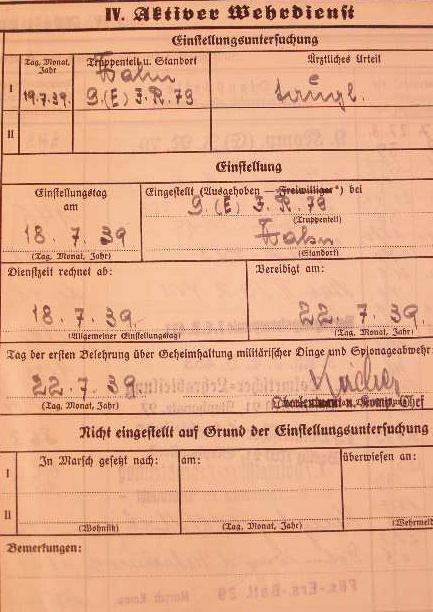 IV. Aktiver Wehrdienst
Einstellungsuntersuchung
Tag, Monat, Jahr
Truppenteil u. Standort
Ärztliches Urteil
I
19.7.39.
Hahn
9.(E) J.R.79
taugl.
II
Einstellung
Einstellungstag
am
18.7.39
(Tag, Monat, Jahr)
Eingestellt (Ausgehoben — Freiwilliger*) bei
9(E) J.R.79
(Truppenteil)
Hahn
(Standort)
Dienstzeit rechnet ab:
18.7.39.
(Allgemeiner Einstellungstag)
Vereidigt am:
22.7.39.
(Tag, Monat, Jahr)
Tag der ersten Belehrung über Geheimhaltung militärischer Dinge und Spionageabwehr:
22.7.39
(Tag, Monat, Jahr)
u. Komp.-Chef
Nicht eingestellt auf Grund der Einstellungsuntersuchung
I
In Marsch gesetzt nach:
am:
überwiesen an:
II
(Wohnsitz)
(Tag, Monat, Jahr)
(Wehrmeld
Bemerkungen: